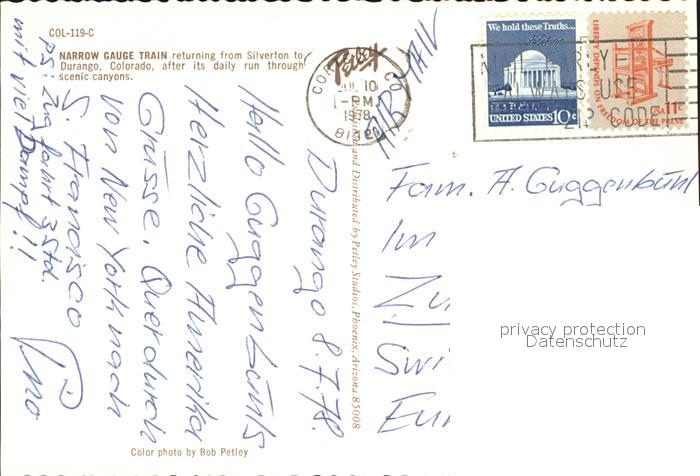 COL-119-C
NARROW GAUGE TRAIN returning from Silverton to
Durango, Colorado, after its daily run through
scenic canyons.
We hold these Truths...
UNITED STATES 10c
LIBERTY DEPENDS ON
FREEDOM OF THE PRESS
USA 11c
CORTEZ CO
JUL 10
PM
1978
81321
ALWAYS USE
ZIP CODE
Petley
AIR MAIL
and Distributed by Petley Studios, Phoenix, Arizona 85008
Durango 8.7.78.
Hallo Guggenbühls
Herzliche Amerika
Grüsse. Querdurch
von New York nach
S. Francisco
Pino
PS: Zugfahrt 3 Std.
mit viel Dampf!!
Fam. A. Guggenbühl
Im
Zü
Swi
Eur
privacy protection
Datenschutz
Color photo by Bob Petley